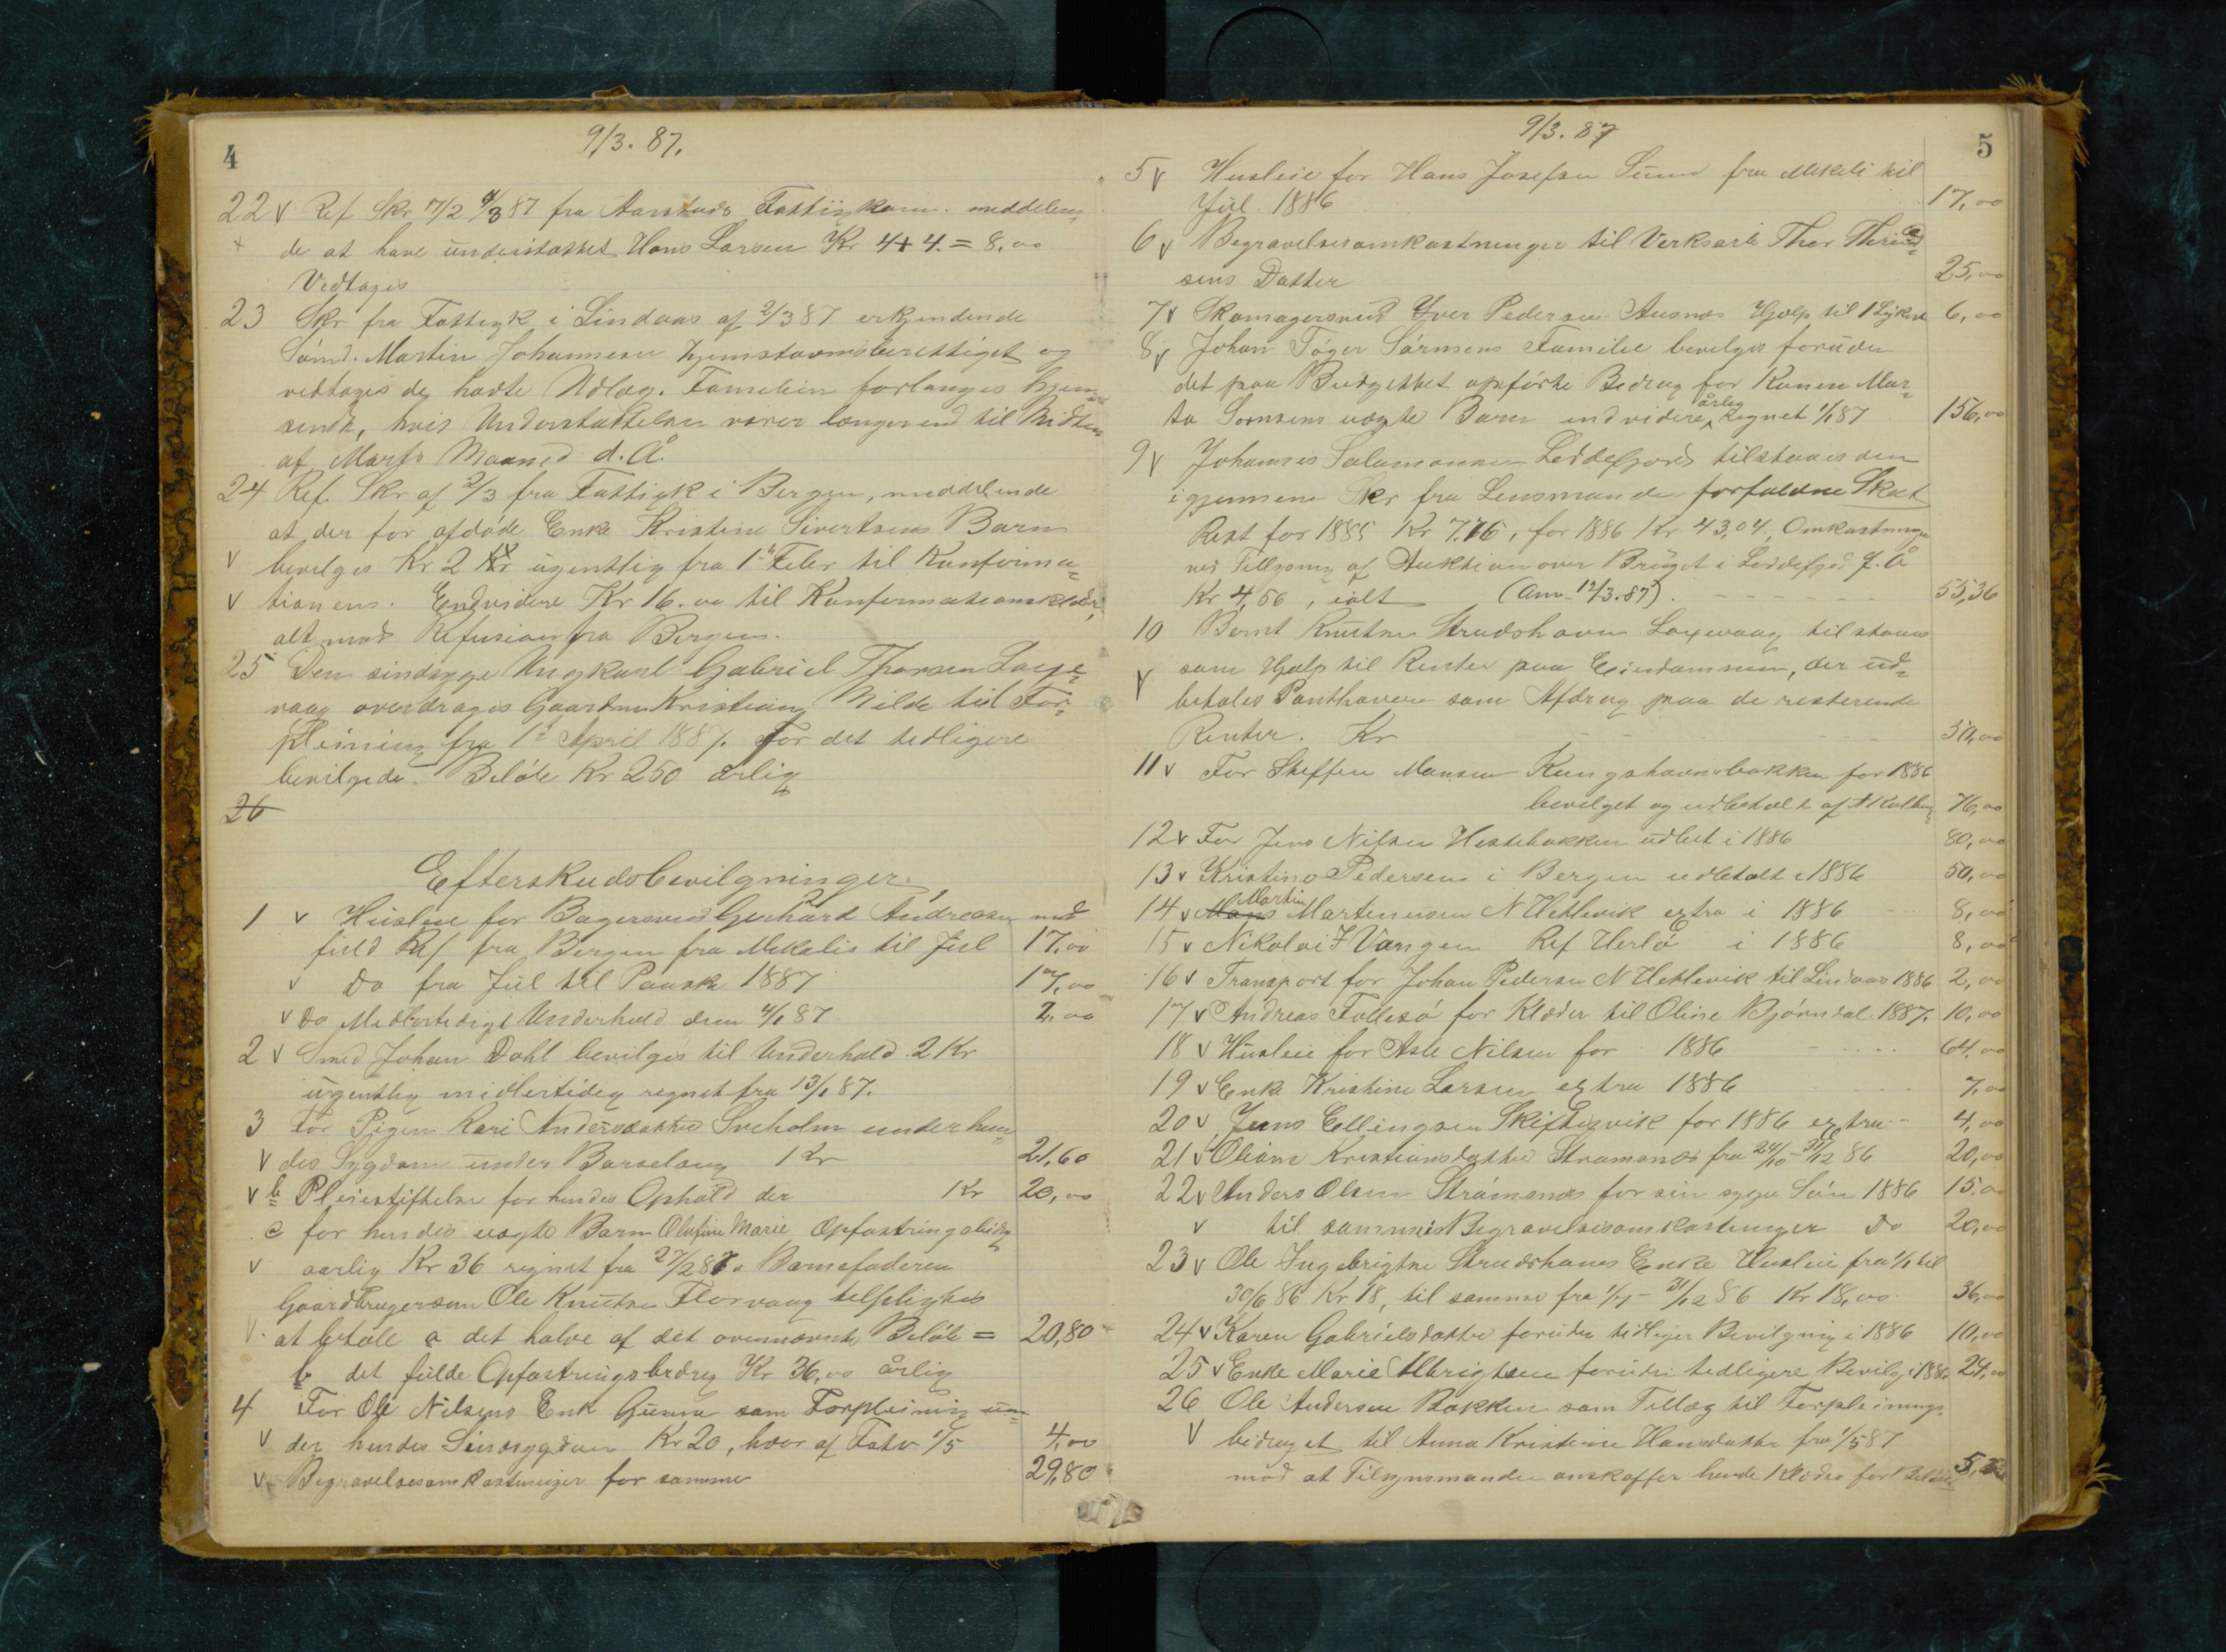 4
9/3. 87.
22 v Ref. Skr. 17/2 4/3 87 fra Aarstads Fattigkom. meddelen,
de at have understøttet Hans Larsen Kr 4+4. = 8,00
Vedtages
23 Skr fra Fattigk. i Lindaas af 2/3 87 erkjendende
Martin Johannesen hjemstavnsberettiget og
vedtages de havte Udlæg. Familien forlanges hjem=
sendt, hvis Understøttelsen varer længer end til Midten
af Marts Maaned d. Å.
24 Ref. Skr af 2/3 fra Fattigk i Bergen, meddelende
at der for afdøde Enke Kristine Sivertsens Barn
v bevilges Kr 2 ugentlig fra 1ste Febr til Konfirma=
v tionens. Endvidere Kr 16.00 til Konfirmationsklæder,
alt mod Refusion fra Bergen.
25 Den sindsyge Ungkarl Gabriel Thorsen Laxe=
vaag overdrages Gaardm Kristian Milde til For=
pleining fra 1ste April 1887. For det tidligere
bevilgede Beløb Kr 250 årlig
26
Efterskudsbevilgninger.
1 v Husleie for Bagersvend Gerhard Andreasen mod
fuld Ref fra Bergen fra Mikalis til Jul 17,00
v Do fra Jul til Paaske 1887 17,00
v Do Midlertidigt Underhold den 4/1 87 2,00
2 v Smed Johan Dahl bevilges til Underhold 2 Kr
ugentlig midlertidig regnet fra 13/1 87.
3 For Pigen Kari Andersdatter Sveholm under hen=
v des Sygdom under Barselang Kr 21,60
v b Pleiestiftelse for hendes Ophold der Kr 20,00
c for hendes uægte Barn Olufine Marie Opfostringsbidrag
v aarlig Kr 36 regnet fra 27/2 87. Barnefaderen
Gaardbrugersøn Ole Knutsen Florvaag tilpligtes
v at betale a det halve af det ovennævnte Beløb = 20,80
b det fulde Opfostringsbidrag Kr 36,00 årlig
4 For Ole Nilsens Enk Gunna som Forpleining un=
v der hendes Sindssygdom Kr 20, hvoraf Fatv 1/5 4,00
v Begravelsesomkostninger for samme 29,80
9/3. 87
5
5 v Husleie for Hans Josefsen Sund fra Mikali til
Jul 1886 17,00
6 v Begravelsesomkostninger til Verksarb Thor
sens Datter 25,00
7 v Skomagersvend Iver Pedersen Ausnæs Hjælp til 1 Ligkiste 6,00
8 v Johan Tøger Sørnsens Familie bevilges foruden
det paa Budgettet opførte Bidrag for Konen Mar=
ta Sørnsens uægte Barn endvidere årlig Regnet 1/1 87 156,00
9 v Johannes Salamonsen Leddefjord tilstaaes den
igjennem Skr fra Lensmanden forfaldne Skat
Rest for 1885 Kr 7.76, for 1886 Kr 43,04, Omkostninger
ved Tillysning af Auktion over Bruget i Leddefjord f. Å
Kr 4,56, ialt (Anv. 12/3.87). 55,36
10 Bernt Knutsen Strudshavn Laxevaag tilstaaes
v som Hjælp til Renter paa Eiendommen, der ud=
betales Panthaveren som Afdrag paa de resterende
Renter. Kr 50,00
11 v For Steffen Monsen Kongshavnsbakken for 1886
bevilget og udbetalt af 76,00
12 v For Jens Nilsen Hestebakken udbet i 1886 80,00
13 v Kristine Pedersen i Bergen udbetalt i 1886 50,00
14 v Mons Martin Martinussen N Hetlevik extra i 1886 8,00
15 v Nikolai J Vangen Ref Herlø i 1886 8,00
16 v Transport for Johan Pedersen N Hetlevik til Lindaas 1886 2,00
17 v Andreas Follesø for Klæder til Oline Bjørndal 1887. 10,00
18 v Husleie for Asle Nilsen for 1886 64,00
19 v Enke Kristine Larsen extra 1886 7,00
20 v Jens Ellingsen Skiftesvik for 1886 extra 4,00
21 v Oliane Kristiansdatter Strømsnæs fra 24/10 - 31/12 86 20,00
22 v Anders Olsen Strømsnæs for sin syge Søn 1886 15,00
v til sammes Begravelsesomkostninger Do 20,00
23 v Ole Ingebrigtsen Strudshavns Enke Husleie fra 1/1 til
30/6 86 Kr 18, til samme fra 1/7 - 31/12 86 Kr 18,00 36,00
24 v Karen Gabrielsdatter foruden tidligere Bevilgning i 1886 10,00
25 v Enke Marie Albrigtsen foruden tidligere Bevilg. i 1886 24,00
26 Ole Andersen Bakken som Tillæg til Forpleinings=
v bidraget til Anna Kristine Hansdatter fra 1/5 87
mod at Tilsynsmanden anskaffer hende Klæder for Beløbet